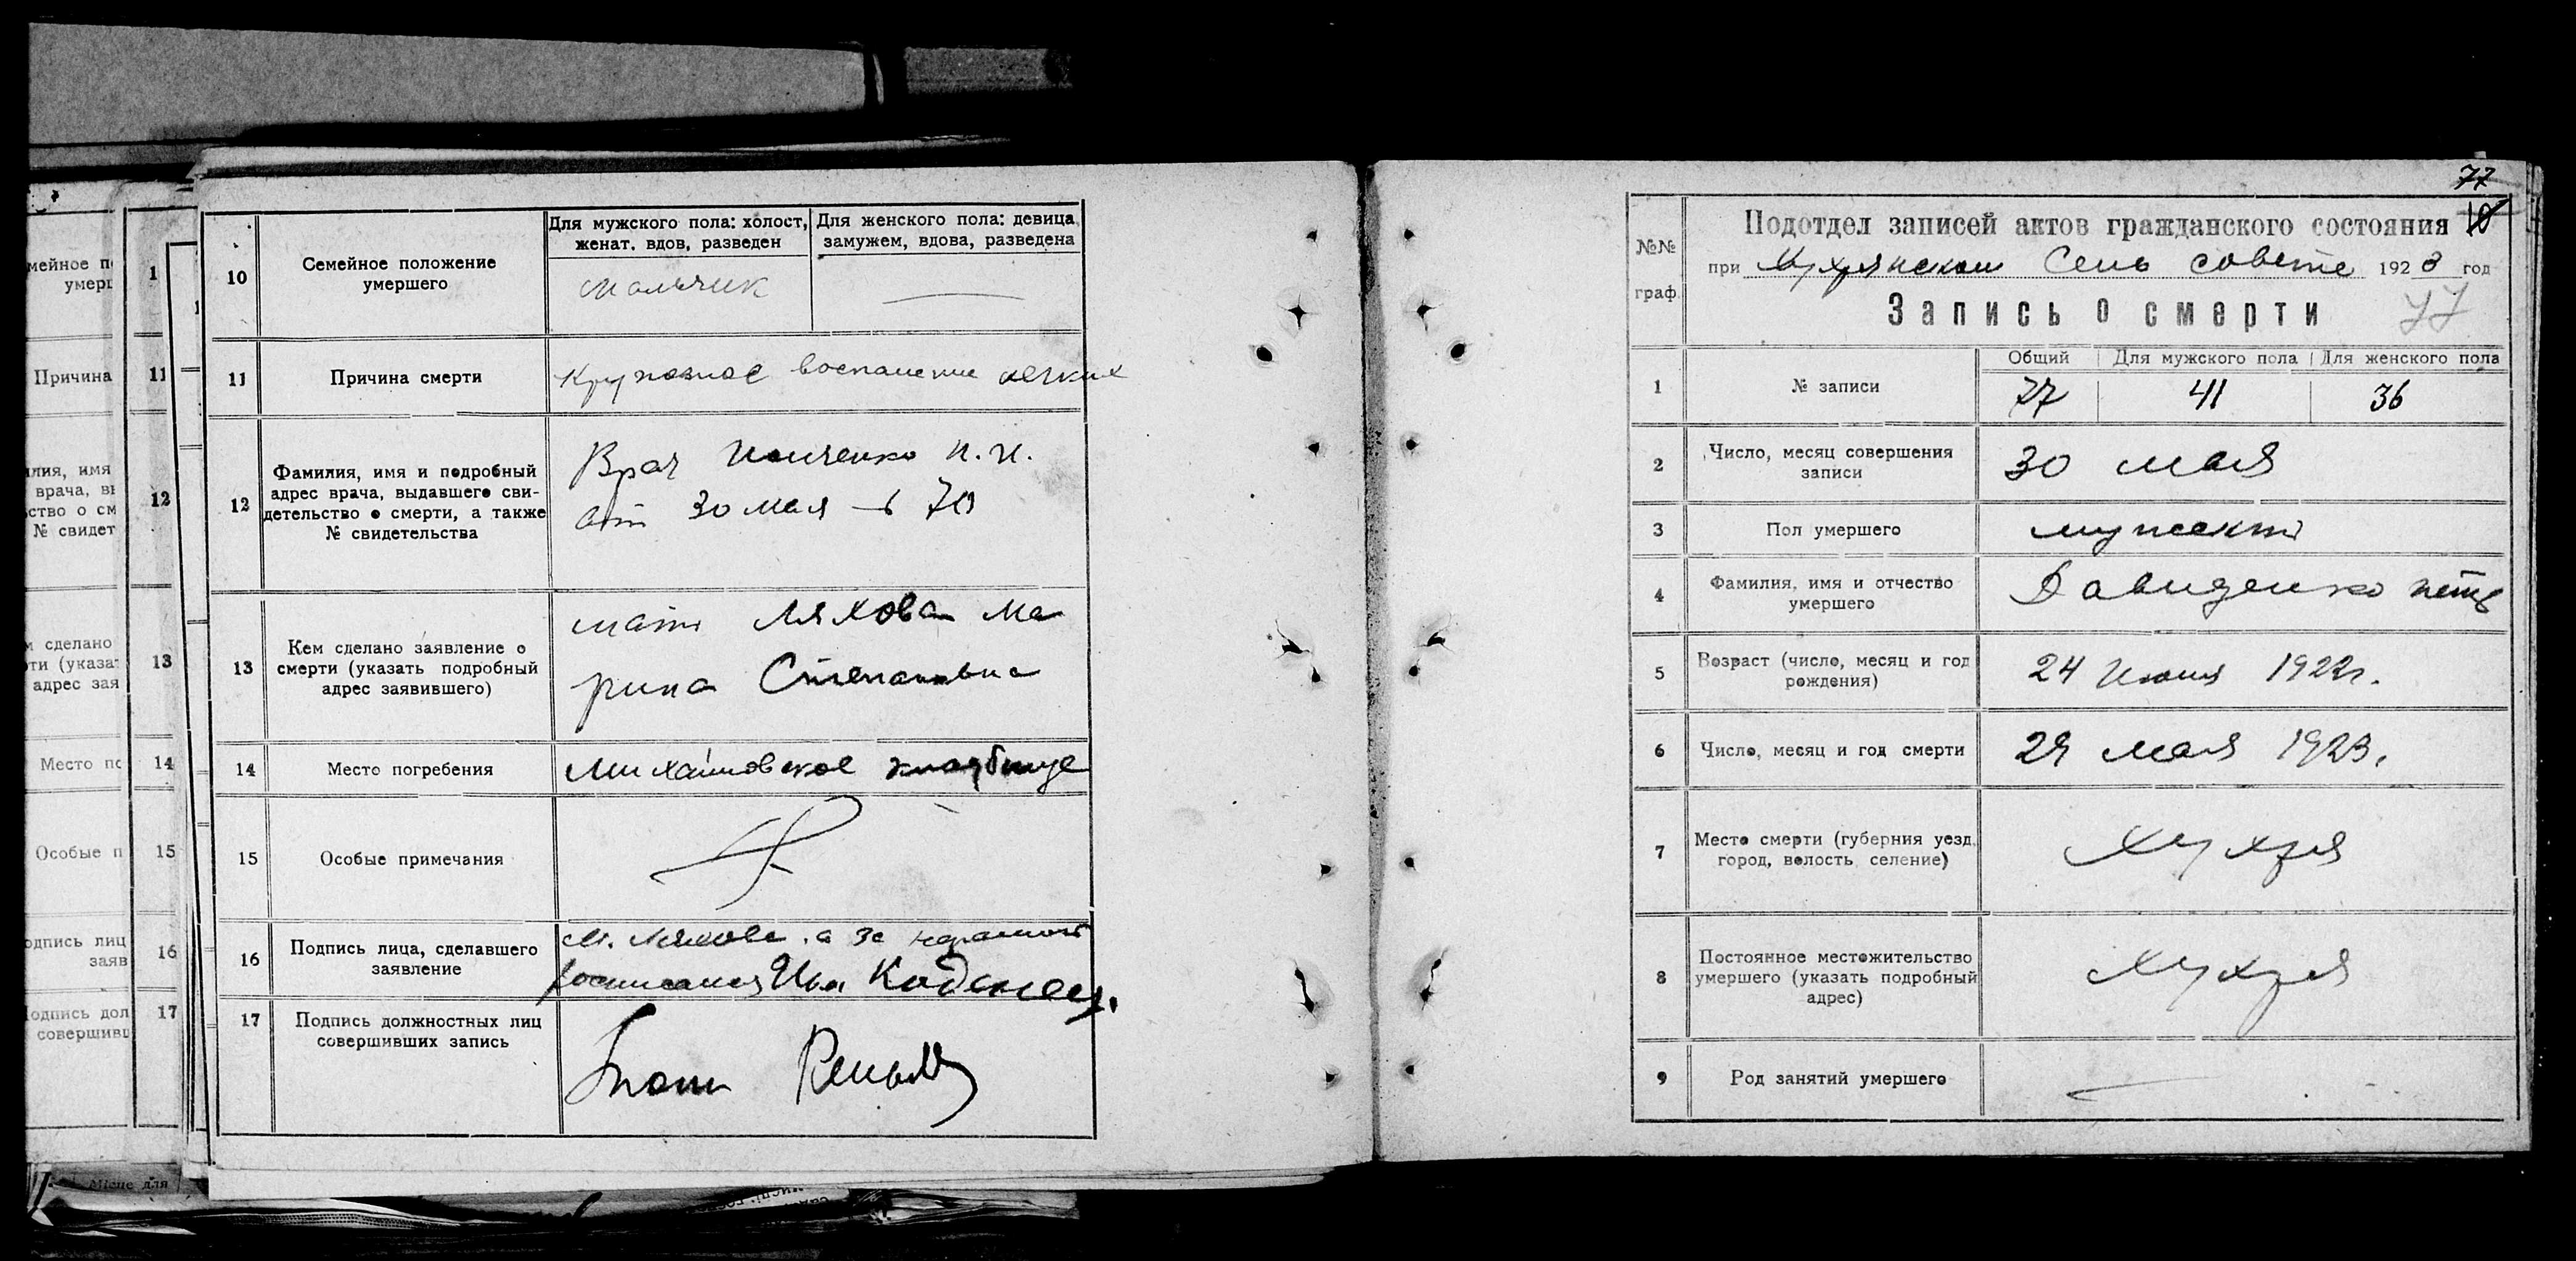 мейное п
умер
1
Причина
11
илия, имя
врача, вы
ство о см
№ свидет
12
м сделано
ти (указат
адрес зая
13
Место по
14
Особые п
15
одпись лиц
заяв
16
одпись дол
совершивш
17
Місце для
10
Семейное положение
умершего
Для мужского пола: холост,
женат, вдов, разведен
Для женского пола: девица
замужем, вдова, разведена
мальчик
11
Причина смерти
Крупозное воспаление легких
12
Фамилия, имя и подробный
адрес врача, выдавшего сви-
детельство о смерти, а также
№ свидетельства
Врач П. И.
от 30 мая
13
Кем сделано заявление о
смерти (указать подробный
адрес заявившего)
мать Ляхова Ма
рина Степановна
14
Место погребения
Михайловское кладбище
15
Особые примечания
16
Подпись лица, сделавшего
заявление
М. Ляхова, а за неграмот
росписался
17
Подпись должностных лиц
совершивших запись
77
10
№№
граф.
Подотдел записей актов гражданского состояния
при Мухрянском Сель совете 1923 год
Запись о смерти
77
1
№ записи
Общий
Для мужского пола
Для женского пола
77
41
36
2
Число, месяц совершения
записи
30 мая
3
Пол умершего
мужской
4
Фамилия, имя и отчество
умершего
Давиденко Петр
5
Возраст (число, месяц и год
рождения)
24 Июня 1922г.
6
Число, месяц и год смерти
29 мая 1923.
7
Место смерти (губерния уезд,
город, волость, селение)
Хухря
8
Постоянное местожительство
умершего (указать подробный
адрес)
Хухря
9
Род занятий умершего